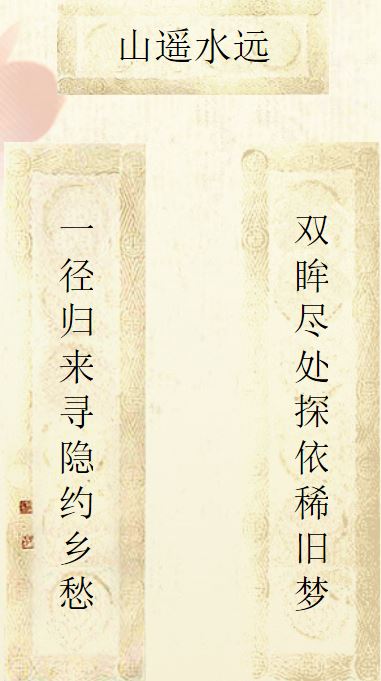 山遥水远
双眸尽处探依稀旧梦
一径归来寻隐约乡愁